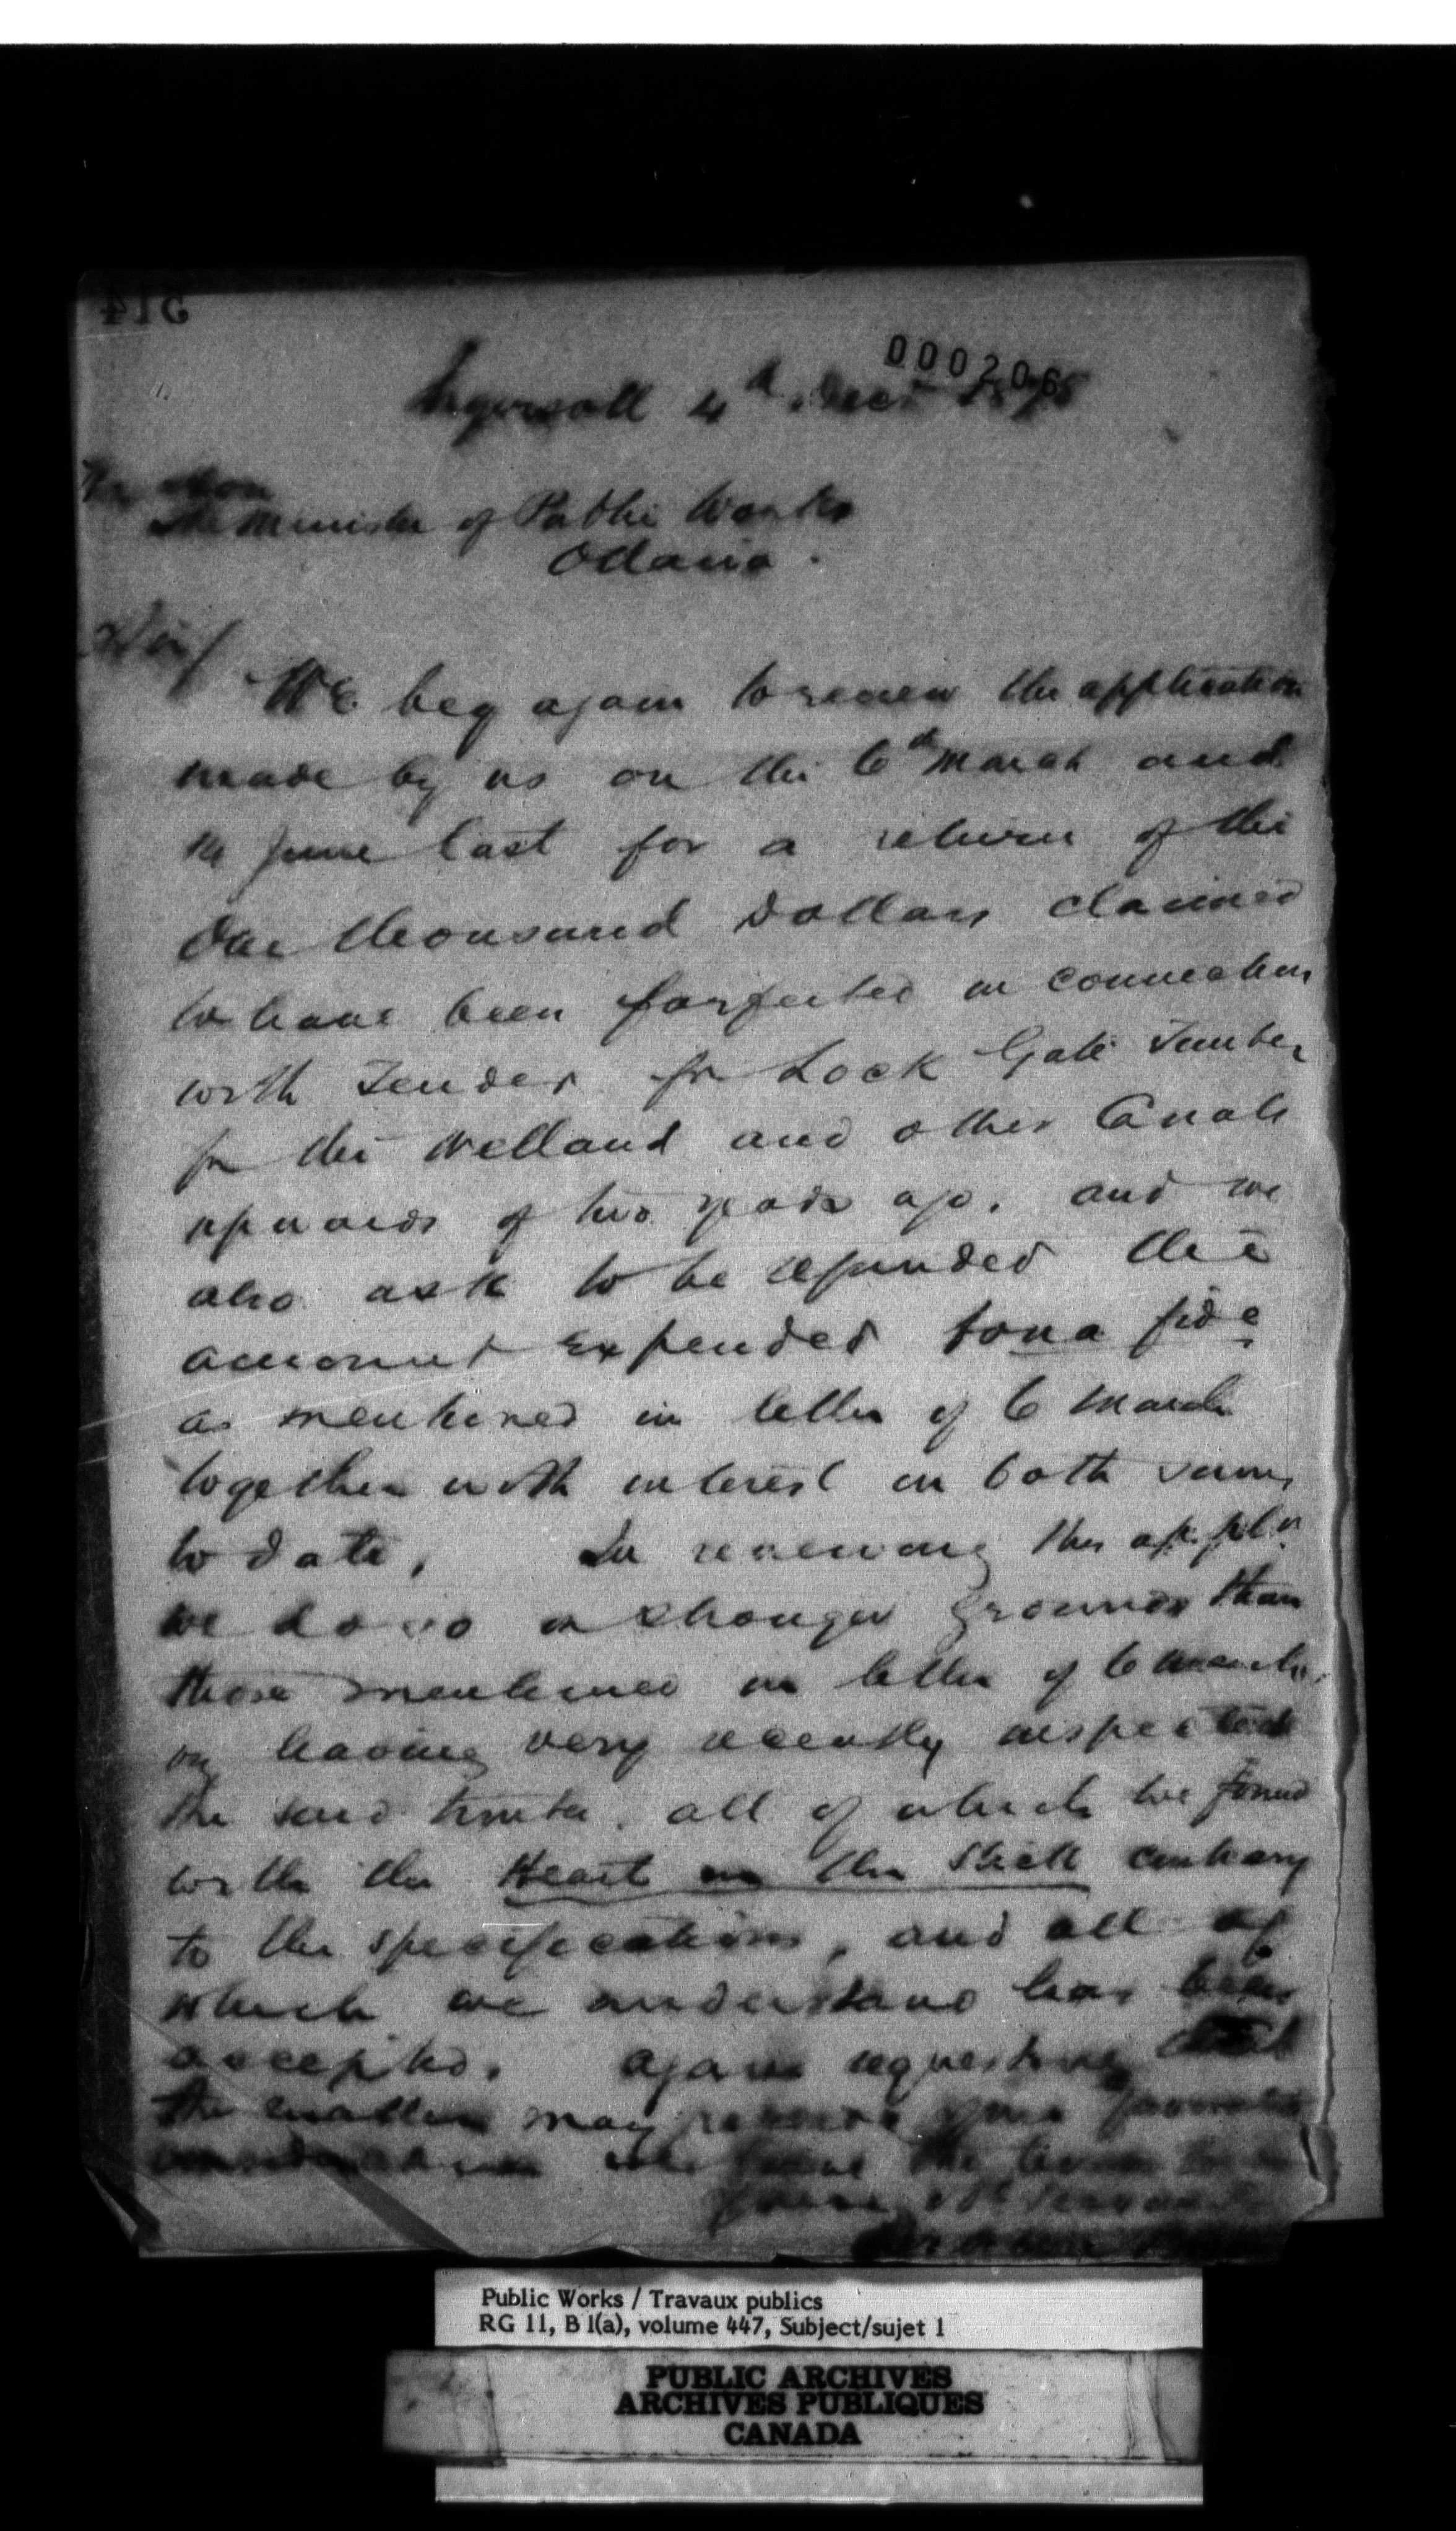 514
000206
Ingersoll 4th Dect 1878
The Hon
The Minister of Public Works
Ottawa.
Sir/
We beg again to renew the application
made by us on the 6th March and
14 June last for a return of the
One thousand Dollars claimed
to have been forfeited in connection
with Tender for Lock Gate Timber
for the Welland and other Canals
upwards of two years ago, and we
also ask to be refunded the
amount expended bona fide
as mentioned in letter of 6 March
together with interest on both sums
to date, In renewing this appln
we do so on stronger grounds than
those mentioned in letter of 6 March,
on having very recently inspected
the said timber, all of which we found
with the Heart in the Stick contrary
to the specifications, and all of
which we understand has been
accepted. Again requesting that
the matter may receive your favorable
consideration we have the honor to be
Your Obt Servants